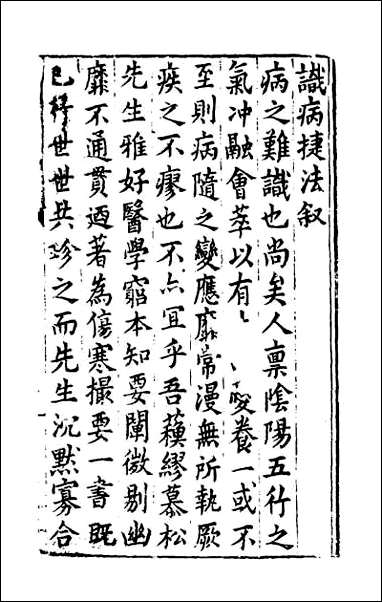 識病捷法叙
病之難識也尚矣人稟陰陽五行之
氣冲融會萃以有養一或不
至則病隨之變應靡常漫無所執厥
疾之不瘳也不亦宜乎吾藕繆慕松
先生雅好醫學窮本知要闡微剔幽
靡不通貫迺著為傷寒撮要一書既
已梓世世共珍之而先生沉默寡合